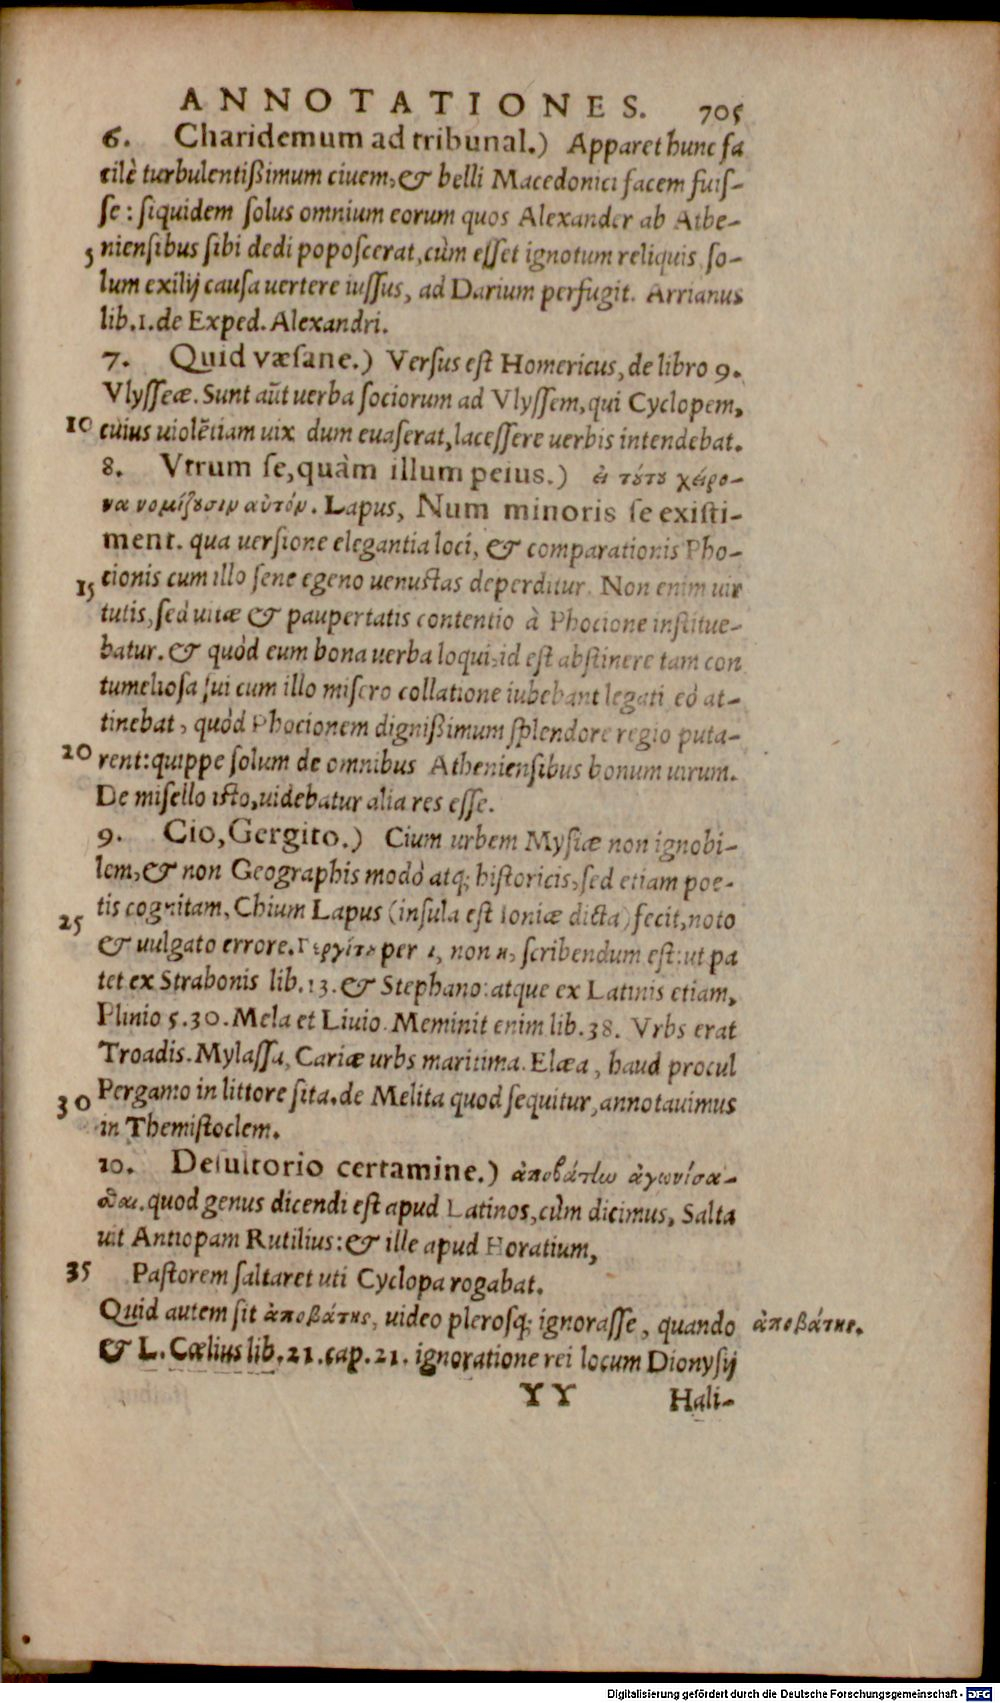 ANNOTATIONES. 705
6. Charidemum ad tribunal.) Apparet hunc fa
cilè turbulentißimum ciuem, & belli Macedonici facem fuis-
se: siquidem solus omnium eorum quos Alexander ab Athe-
5 niensibus sibi dedi poposcerat, cùm esset ignotum reliquis, so-
lum exilij causa uertere iussus, ad Darium perfugit. Arrianus
lib. 1. de Exped. Alexandri.
7. Quid væsane.) Versus est Homericus, de libro 9.
Vlysseæ. Sunt aūt uerba sociorum ad Vlyssem, qui Cyclopem,
10 cuius uiolētiam uix dum euaserat, lacessere uerbis intendebat.
8. Vtrum se, quàm illum peius.) ἐι τύτȣ χείρο-
να νομίζȣσιν αὐτόν. Lapus, Num minoris se existi-
ment. qua uersione elegantia loci, & comparationis Pho-
15 cionis cum illo sene egeno uenustas deperditur. Non enim uir
tutis, sed uitæ & paupertatis contentio à Phocione institue-
batur. & quòd eum bona uerba loqui, id est abstinere tam con
tumeliosa sui cum illo misero collatione iubebant legati eò at-
tinebat, quòd Phocionem dignißimum splendore regio puta-
20 rent: quippe solum de omnibus Atheniensibus bonum uirum.
De misello isto, uidebatur alia res esse.
9. Cio, Gergito.) Cium urbem Mysiæ non ignobi-
lem, & non Geographis modò atq; historicis, sed etiam poe-
25 tis cognitam, Chium Lapus (insula est Ioniæ dicta) fecit, noto
& uulgato errore. Γεργίτȣ per ι, non η, scribendum est: ut pa
tet ex Strabonis lib. 13. & Stephano: atque ex Latinis etiam,
Plinio 5. 30. Mela et Liuio. Meminit enim lib. 38. Vrbs erat
Troadis. Mylassa, Cariæ urbs maritima. Elæa, haud procul
30 Pergamo in littore sita. de Melita quod sequitur, annotauimus
in Themistoclem.
10. Desultorio certamine.) ἀποβάτίω ἀγωνίσα-
σθαι. quod genus dicendi est apud Latinos, cùm dicimus, Salta
uit Antiopam Rutilius: & ille apud Horatium,
35 Pastorem saltaret uti Cyclopa rogabat.
Quid autem sit ἀποβάτης, uideo plerosq; ignorasse, quando ἀποβάτης.
& L. Cælius lib. 21. cap. 21. ignoratione rei locum Dionysij
YY Hali-
Digitalisierung gefördert durch die Deutsche Forschungsgemeinschaft - DFG